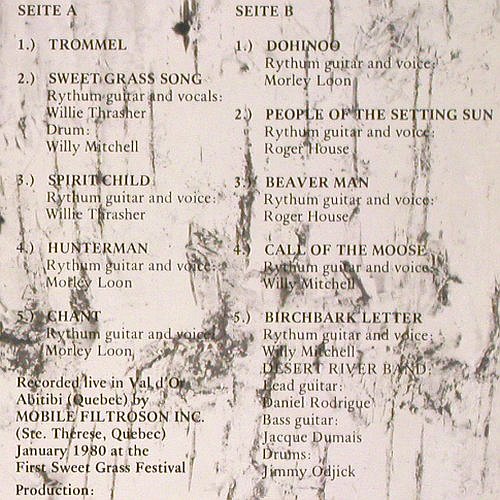 SEITE A
1.) TROMMEL
2.) SWEET GRASS SONG
Rythum guitar and vocals:
Willie Thrasher
Drum:
Willy Mitchell
3.) SPIRIT CHILD
Rythum guitar and voice:
Willie Thrasher
4.) HUNTERMAN
Rythum guitar and voice:
Morley Loon
5.) CHANT
Rythum guitar and voice:
Morley Loon
Recorded live in Val d'Or
Abitibi (Quebec) by
MOBILE FILTROSON INC.
(Ste. Thérese, Quebec)
January 1980 at the
First Sweet Grass Festival
Production:
SEITE B
1.) DOHINOO
Rythum guitar and voice:
Morley Loon
2.) PEOPLE OF THE SETTING SUN
Rythum guitar and voice:
Roger House
3.) BEAVER MAN
Rythum guitar and voice:
Roger House
4.) CALL OF THE MOOSE
Rythum guitar and voice:
Willy Mitchell
5.) BIRCHBARK LETTER
Rythum guitar and voice:
Willy Mitchell
DESERT RIVER BAND:
Lead guitar:
Daniel Rodrigue
Bass guitar:
Jacque Dumais
Drums:
Jimmy Odjick